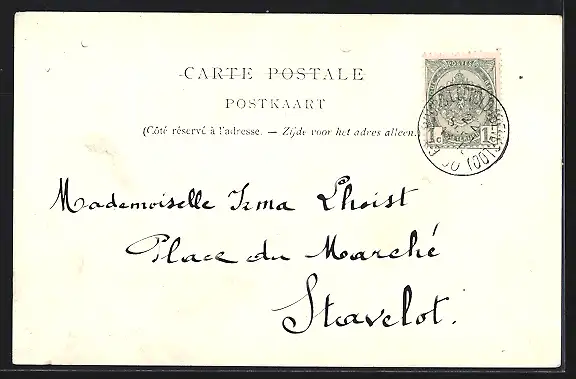 CARTE POSTALE
POSTKAART
(Côté réservé à l'adresse. — Zijde voor het adres alleen.)
POSTES
1 1
Mademoiselle Irma Lhoist
Place du Marché
Stavelot.